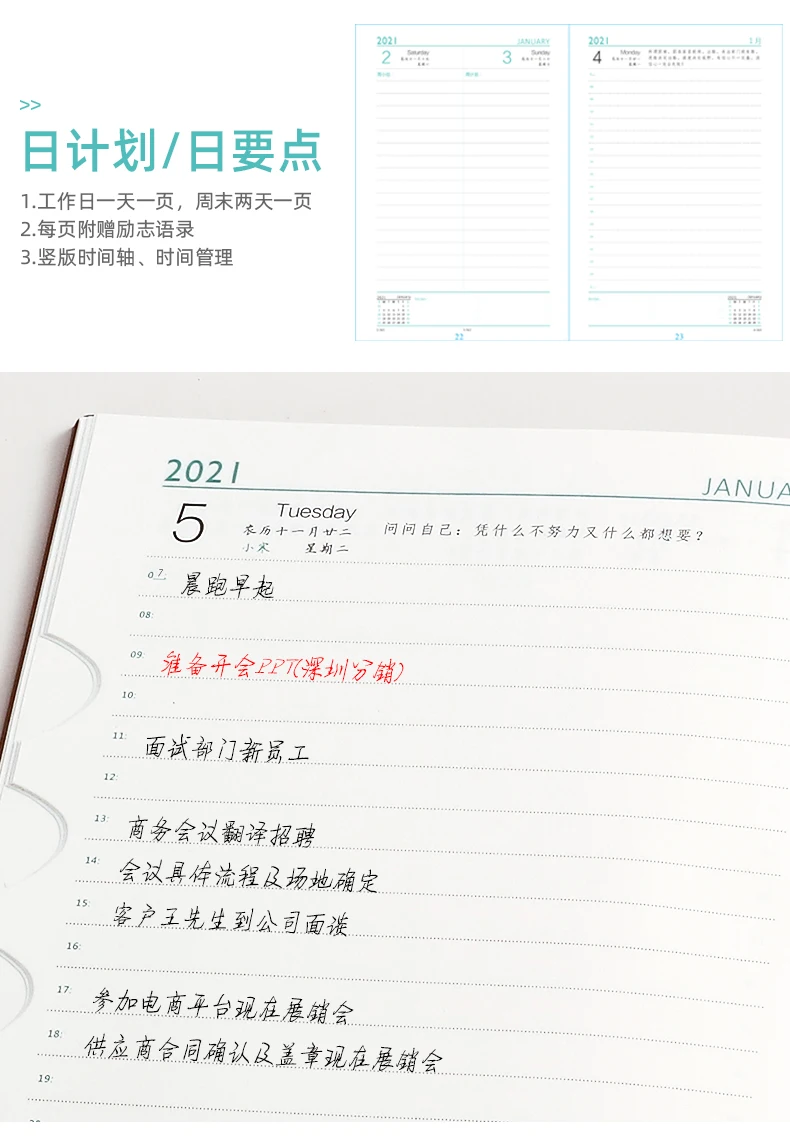 >>
日计划/日要点
1.工作日一天一页，周末两天一页
2.每页附赠励志语录
3.竖版时间轴、时间管理
2021 JANUARY
2 Saturday
3 Sunday
22
2021 1月
4 Monday
23
2021 JANUA
5 Tuesday
农历十一月廿二
小寒 星期二
问问自己：凭什么不努力又什么都想要？
07: 晨跑早起
08:
09: 准备开会PPT(深圳分销)
10:
11: 面试部门新员工
12:
13: 商务会议翻译招聘
14: 会议具体流程及场地确定
15: 客户王先生到公司面谈
16:
17: 参加电商平台现在展销会
18: 供应商合同确认及盖章现在展销会
19: